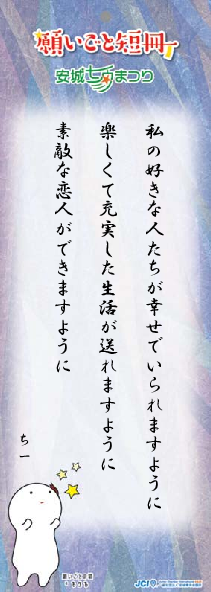 願いごと短冊
安城七夕まつり
私の好きな人たちが幸せでいられますように
楽しくて充実した生活が送れますように
素敵な恋人ができますように
ちー
JCI